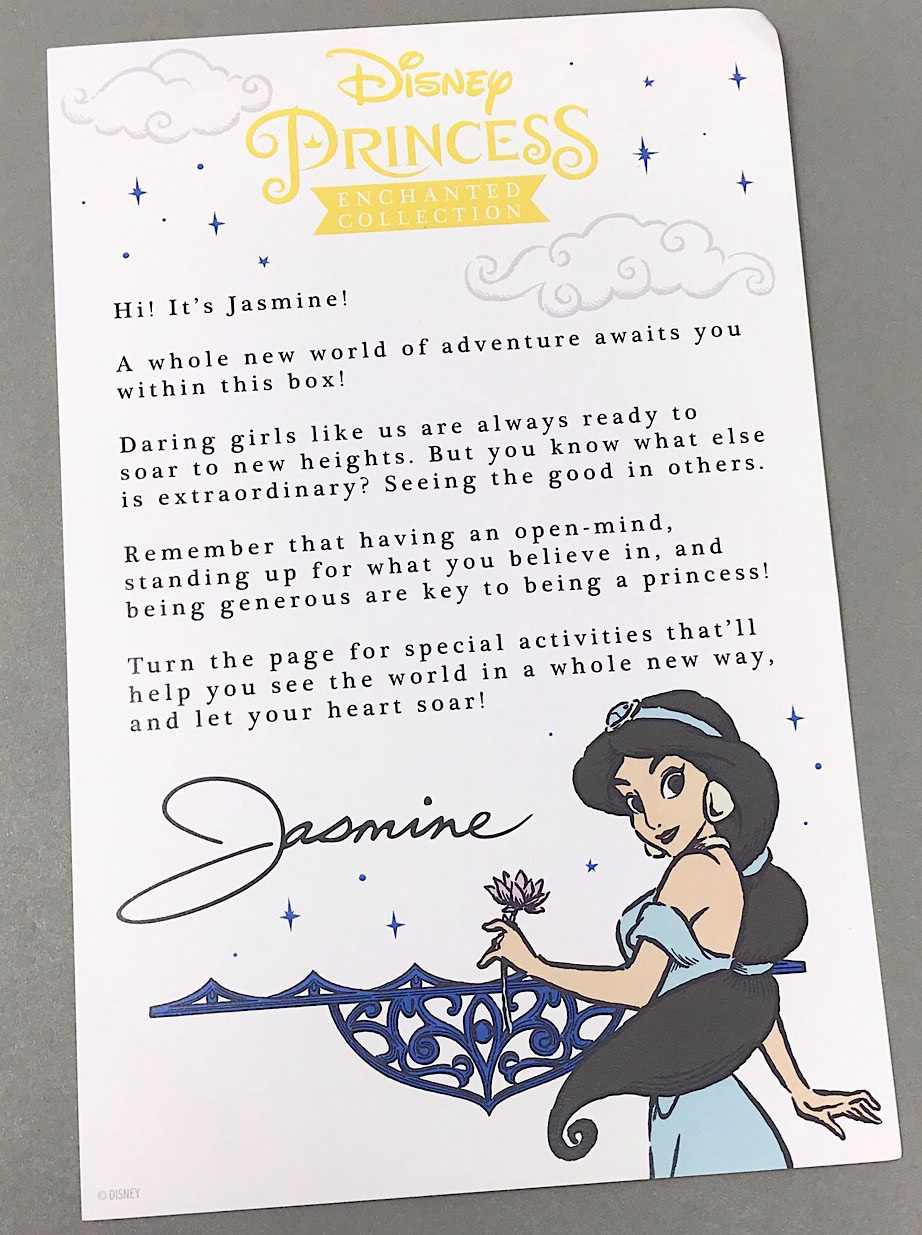 Disney
PRINCESS
ENCHANTED
COLLECTION
Hi! It's Jasmine!
A whole new world of adventure awaits you
within this box!
Daring girls like us are always ready to
soar to new heights. But you know what else
is extraordinary? Seeing the good in others.
Remember that having an open-mind,
standing up for what you believe in, and
being generous are key to being a princess!
Turn the page for special activities that'll
help you see the world in a whole new way,
and let your heart soar!
Jasmine
© DISNEY